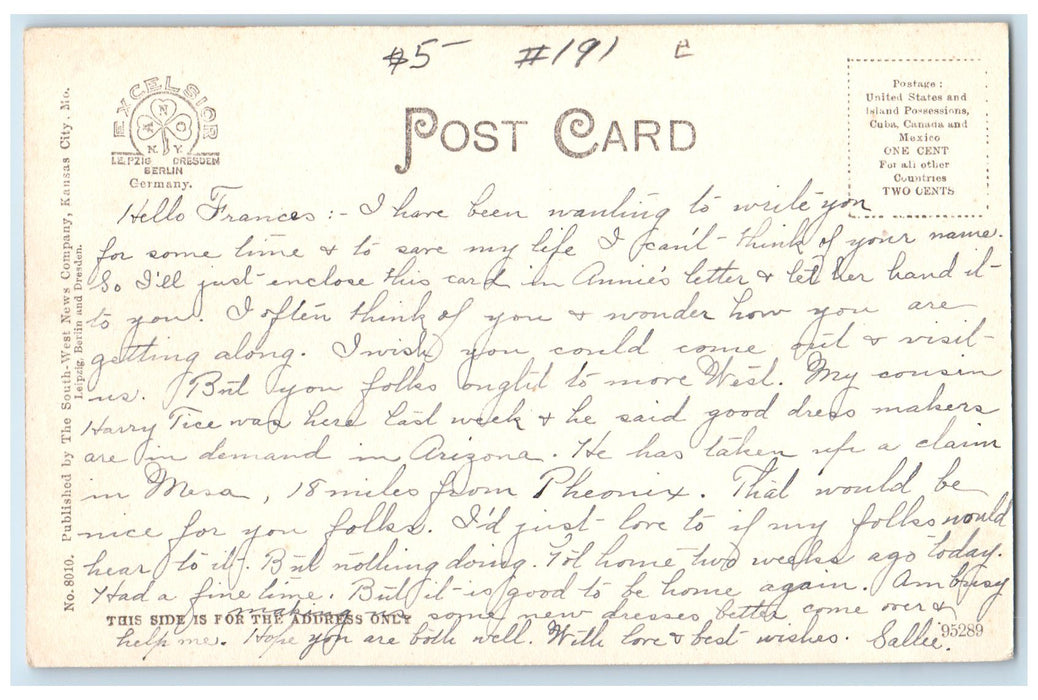 $5- #191 e
EXCELSIOR
A N C O
N.Y.
LEIPZIG DRESDEN
BERLIN
Germany.
POST CARD
Postage:
United States and
Island Possessions,
Cuba, Canada and
Mexico
ONE CENT
For all other
Countries
TWO CENTS
No. 8010. Published by The South-West News Company, Kansas City, Mo.
Leipzig, Berlin and Dresden.
Hello Frances:- I have been wanting to write you
for some time & to save my life I can't think of your name.
So I'll just enclose this card in Annie's letter & let her hand it
to you. I often think of you & wonder how you are
getting along. I wish you could come out & visit
us. But you folks ought to move West. My cousin
Harry Tice was here last week & he said good dress makers
are in demand in Arizona. He has taken up a claim
in Mesa, 18 miles from Pheonix. That would be
nice for you folks. I'd just love to if my folks would
hear to it. But nothing doing. Got home two weeks ago today.
Had a fine time. But it is good to be home again. Am busy
making us some new dresses better come over &
THIS SIDE IS FOR THE ADDRESS ONLY
help me. Hope you are both well. With love & best wishes. Sallee.
95289